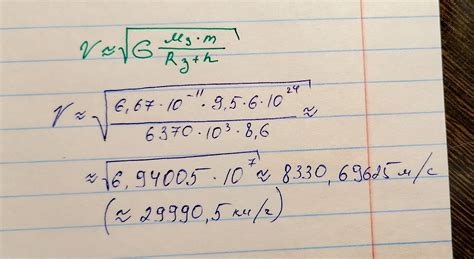 V ≈ √(G (Mз · m)/(Rз + h))
V ≈ √((6,67 · 10⁻¹¹ · 9,5 · 6 · 10²⁴)/(6370 · 10³ · 8,6)) ≈
≈ √(6,94005 · 10⁷) ≈ 8330,69625 м/с
(≈ 29990,5 км/г)